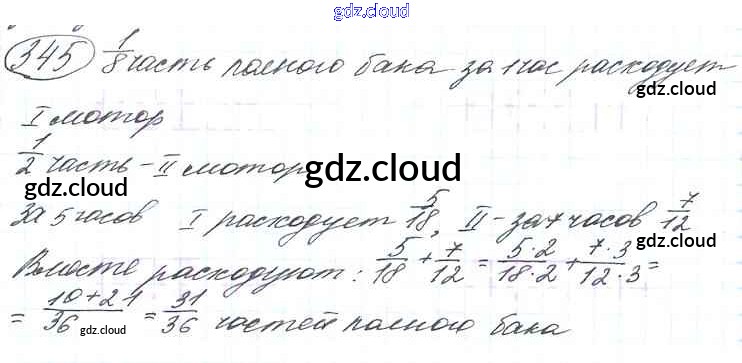 gdz.cloud
345 1/8 часть полного бака за 1 час расходует
gdz.cloud gdz.cloud
I мотор
1/2 часть - II мотор
gdz.cloud
За 5 часов I расходует 5/18, II - за 7 часов 7/12
gdz.cloud
Вместе расходуют: 5/18 + 7/12 = 5·2/18·2 + 7·3/12·3 =
= 10+21/36 = 31/36 частей полного бака
gdz.cloud gdz.cloud